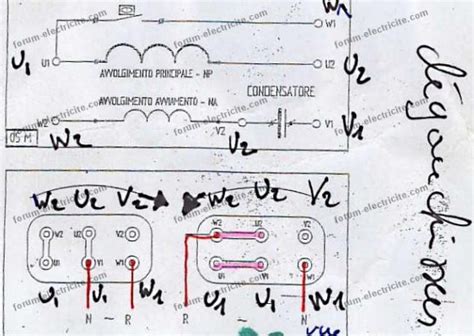 W2
W1
U1
U1
U2
U2
AVVOLGIMENTO PRINCIPALE - NP
AVVOLGIMENTO AVVIAMENTO - NA
CONDENSATORE
05 M
W2
W2
V2
V2
V1
V1
dégauchisseuse
W2 U2 V2
W2 U2 V2
W2 U2 V2
W2 U2 V2
U1 V1 W1
U1 V1 W1
U1 V1 W1
U1 W1
N ~ R
R ~ N
forum-electricite.com